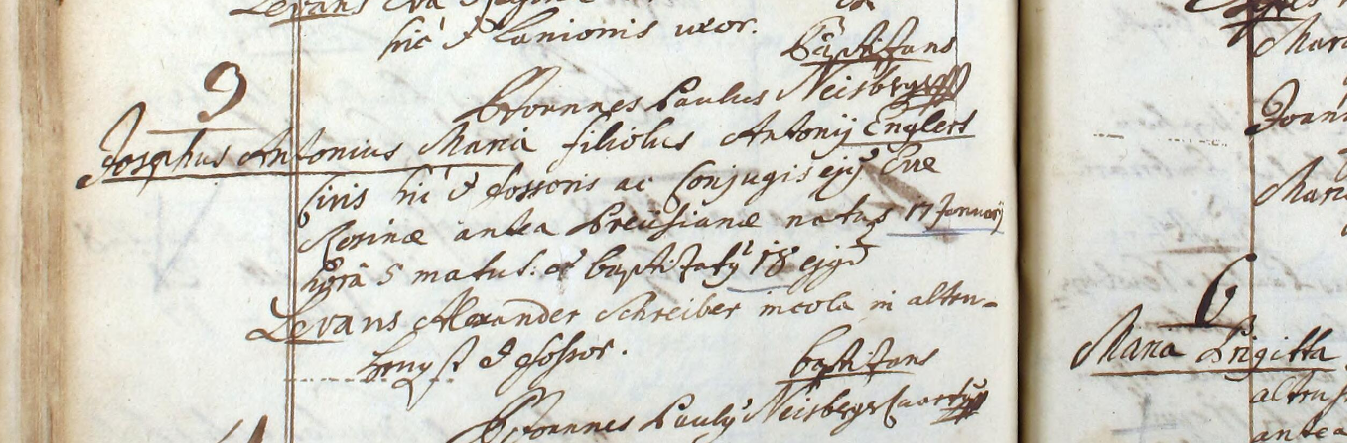 Levans Eva
hic et Lanionis uxor.
baptizans
Joannes Paulus Neisberger
3
Josephus Antonius Maria filiolus Antonij Englert
Civis hic et fossoris ac Conjugis ejus Evae
Rosinae antea Preüsianae natus 17 Januarij
hora 5 matut: et baptizatus 18 ejusd
Levans Alexander Schreiber incola in altru-
et fossor.
baptizans
Joannes Paulus Neisberger
Mar
Joan
Mari
6
Maria Brigitta
altru
antea